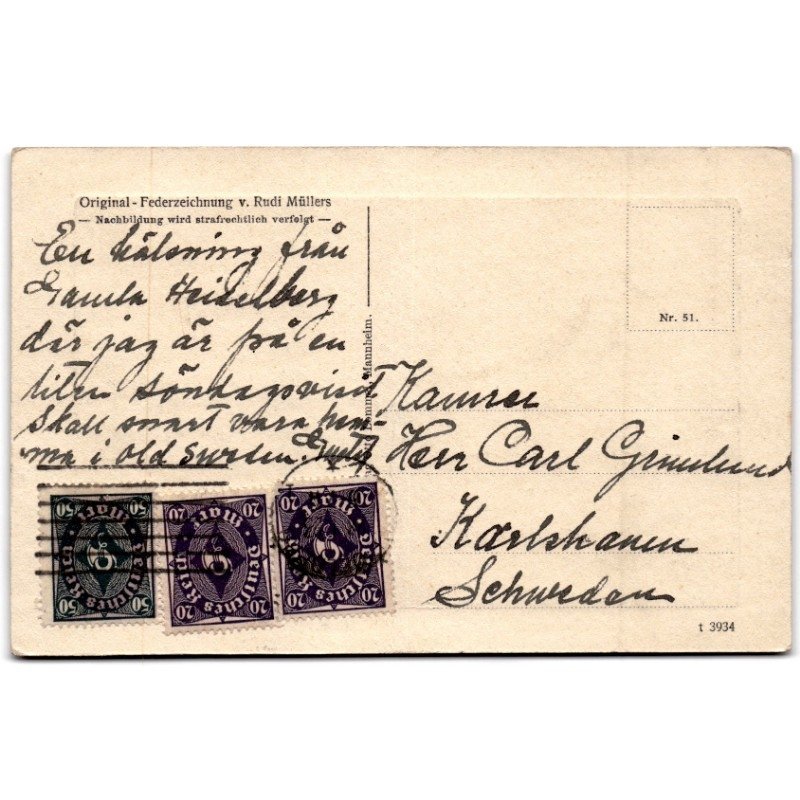 Original - Federzeichnung v. Rudi Müllers
— Nachbildung wird strafrechtlich verfolgt —
En hälsning från
Gamla Heidelberg
där jag är på en
liten söndagsvisit
Skall snart vara hem-
ma i old Sweden.
Mannheim.
Nr. 51.
Herr Carl Grimlund
Karlshamn
Schweden
50 50
Deutsches Reich
Mark
50
20 20
Deutsches Reich
Mark
20 20
20 20
Deutsches Reich
Mark
20 20
t 3934